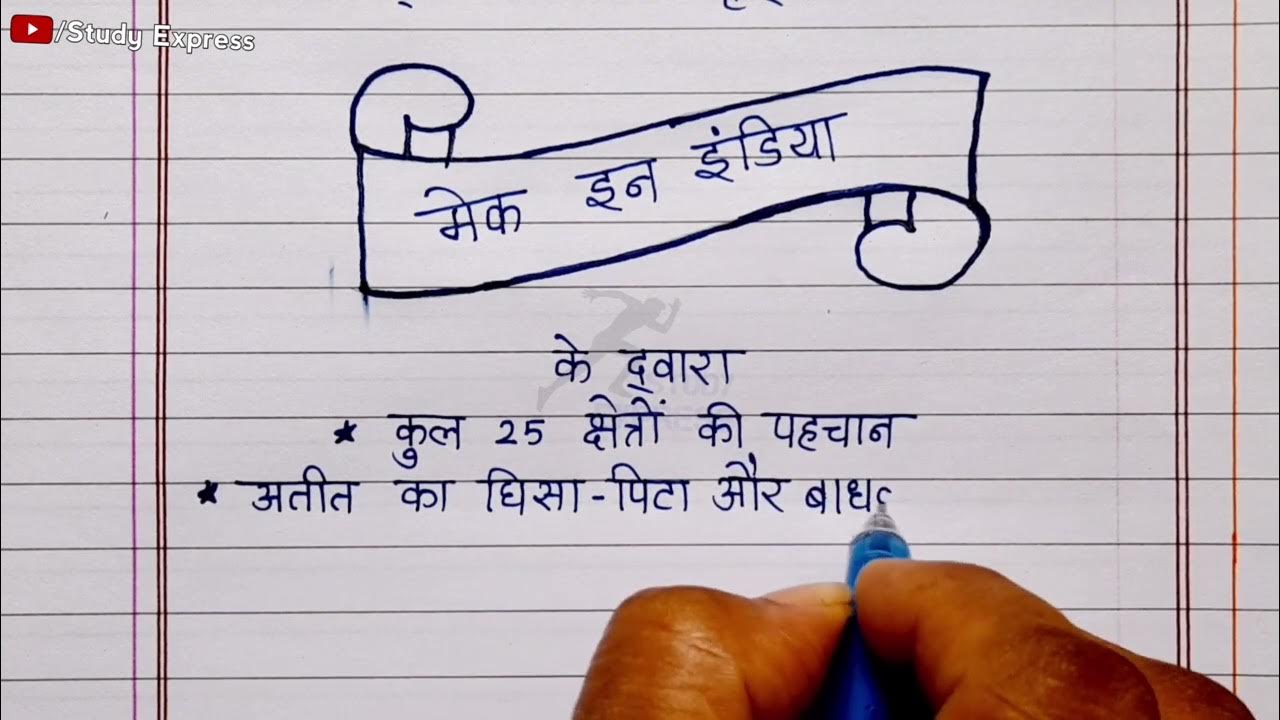 /Study Express
मेक इन इंडिया
के द्वारा
* कुल 25 क्षेत्रों की पहचान
* अतीत का घिसा-पिटा और